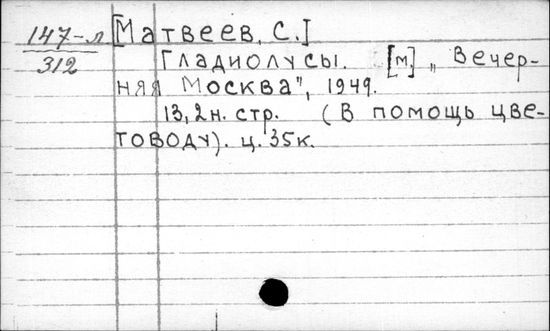 147-л [Матвеев, С.]
312 Гладиолусы. [м] „Вечер-
няя Москва", 1949.
13, 2н. стр. (В помощь цве-
товоду). ц. 35к.